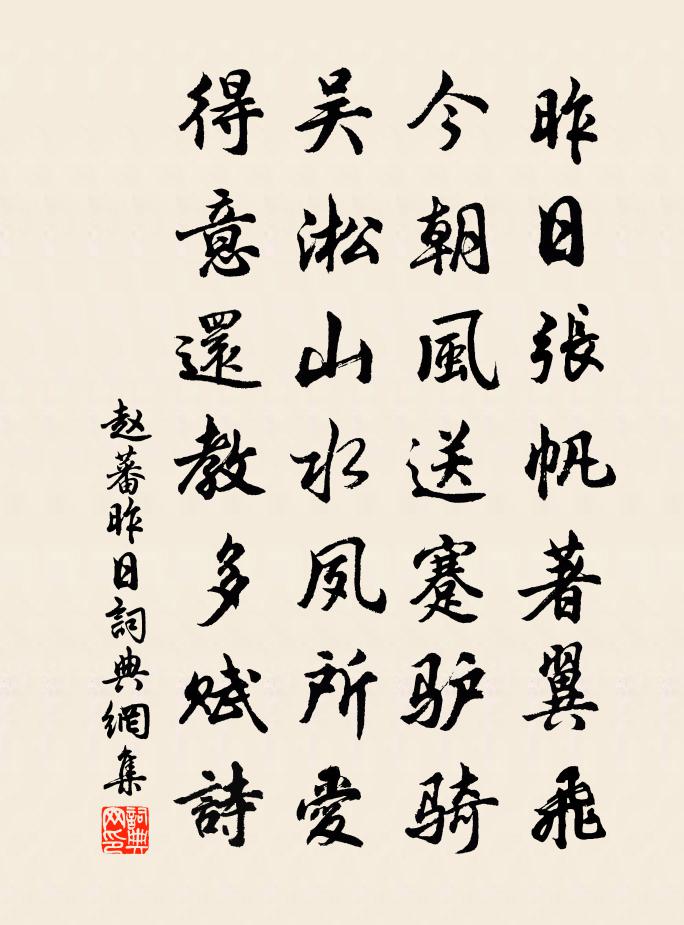 昨日張帆著翼飛
今朝風送蹇驴骑
吴淞山水夙所愛
得意還教多赋詩
赵蕃昨日詞典網集
詞典网印